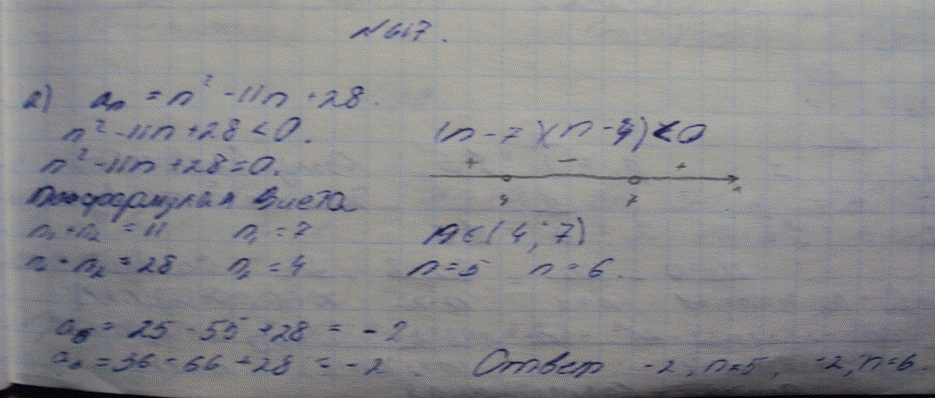 №617.
а) aₙ = n² - 11n + 28.
n² - 11n + 28 < 0.
n² - 11n + 28 = 0.
По формулам Виета
n₁ + n₂ = 11 n₁ = 7
n₁ · n₂ = 28 n₂ = 4
(n - 7)(n - 4) < 0
+ - +
4 7
n ∈ (4; 7)
n = 5 n = 6.
a₅ = 25 - 55 + 28 = -2
a₆ = 36 - 66 + 28 = -2.
Ответ -2; n=5; -2; n=6.